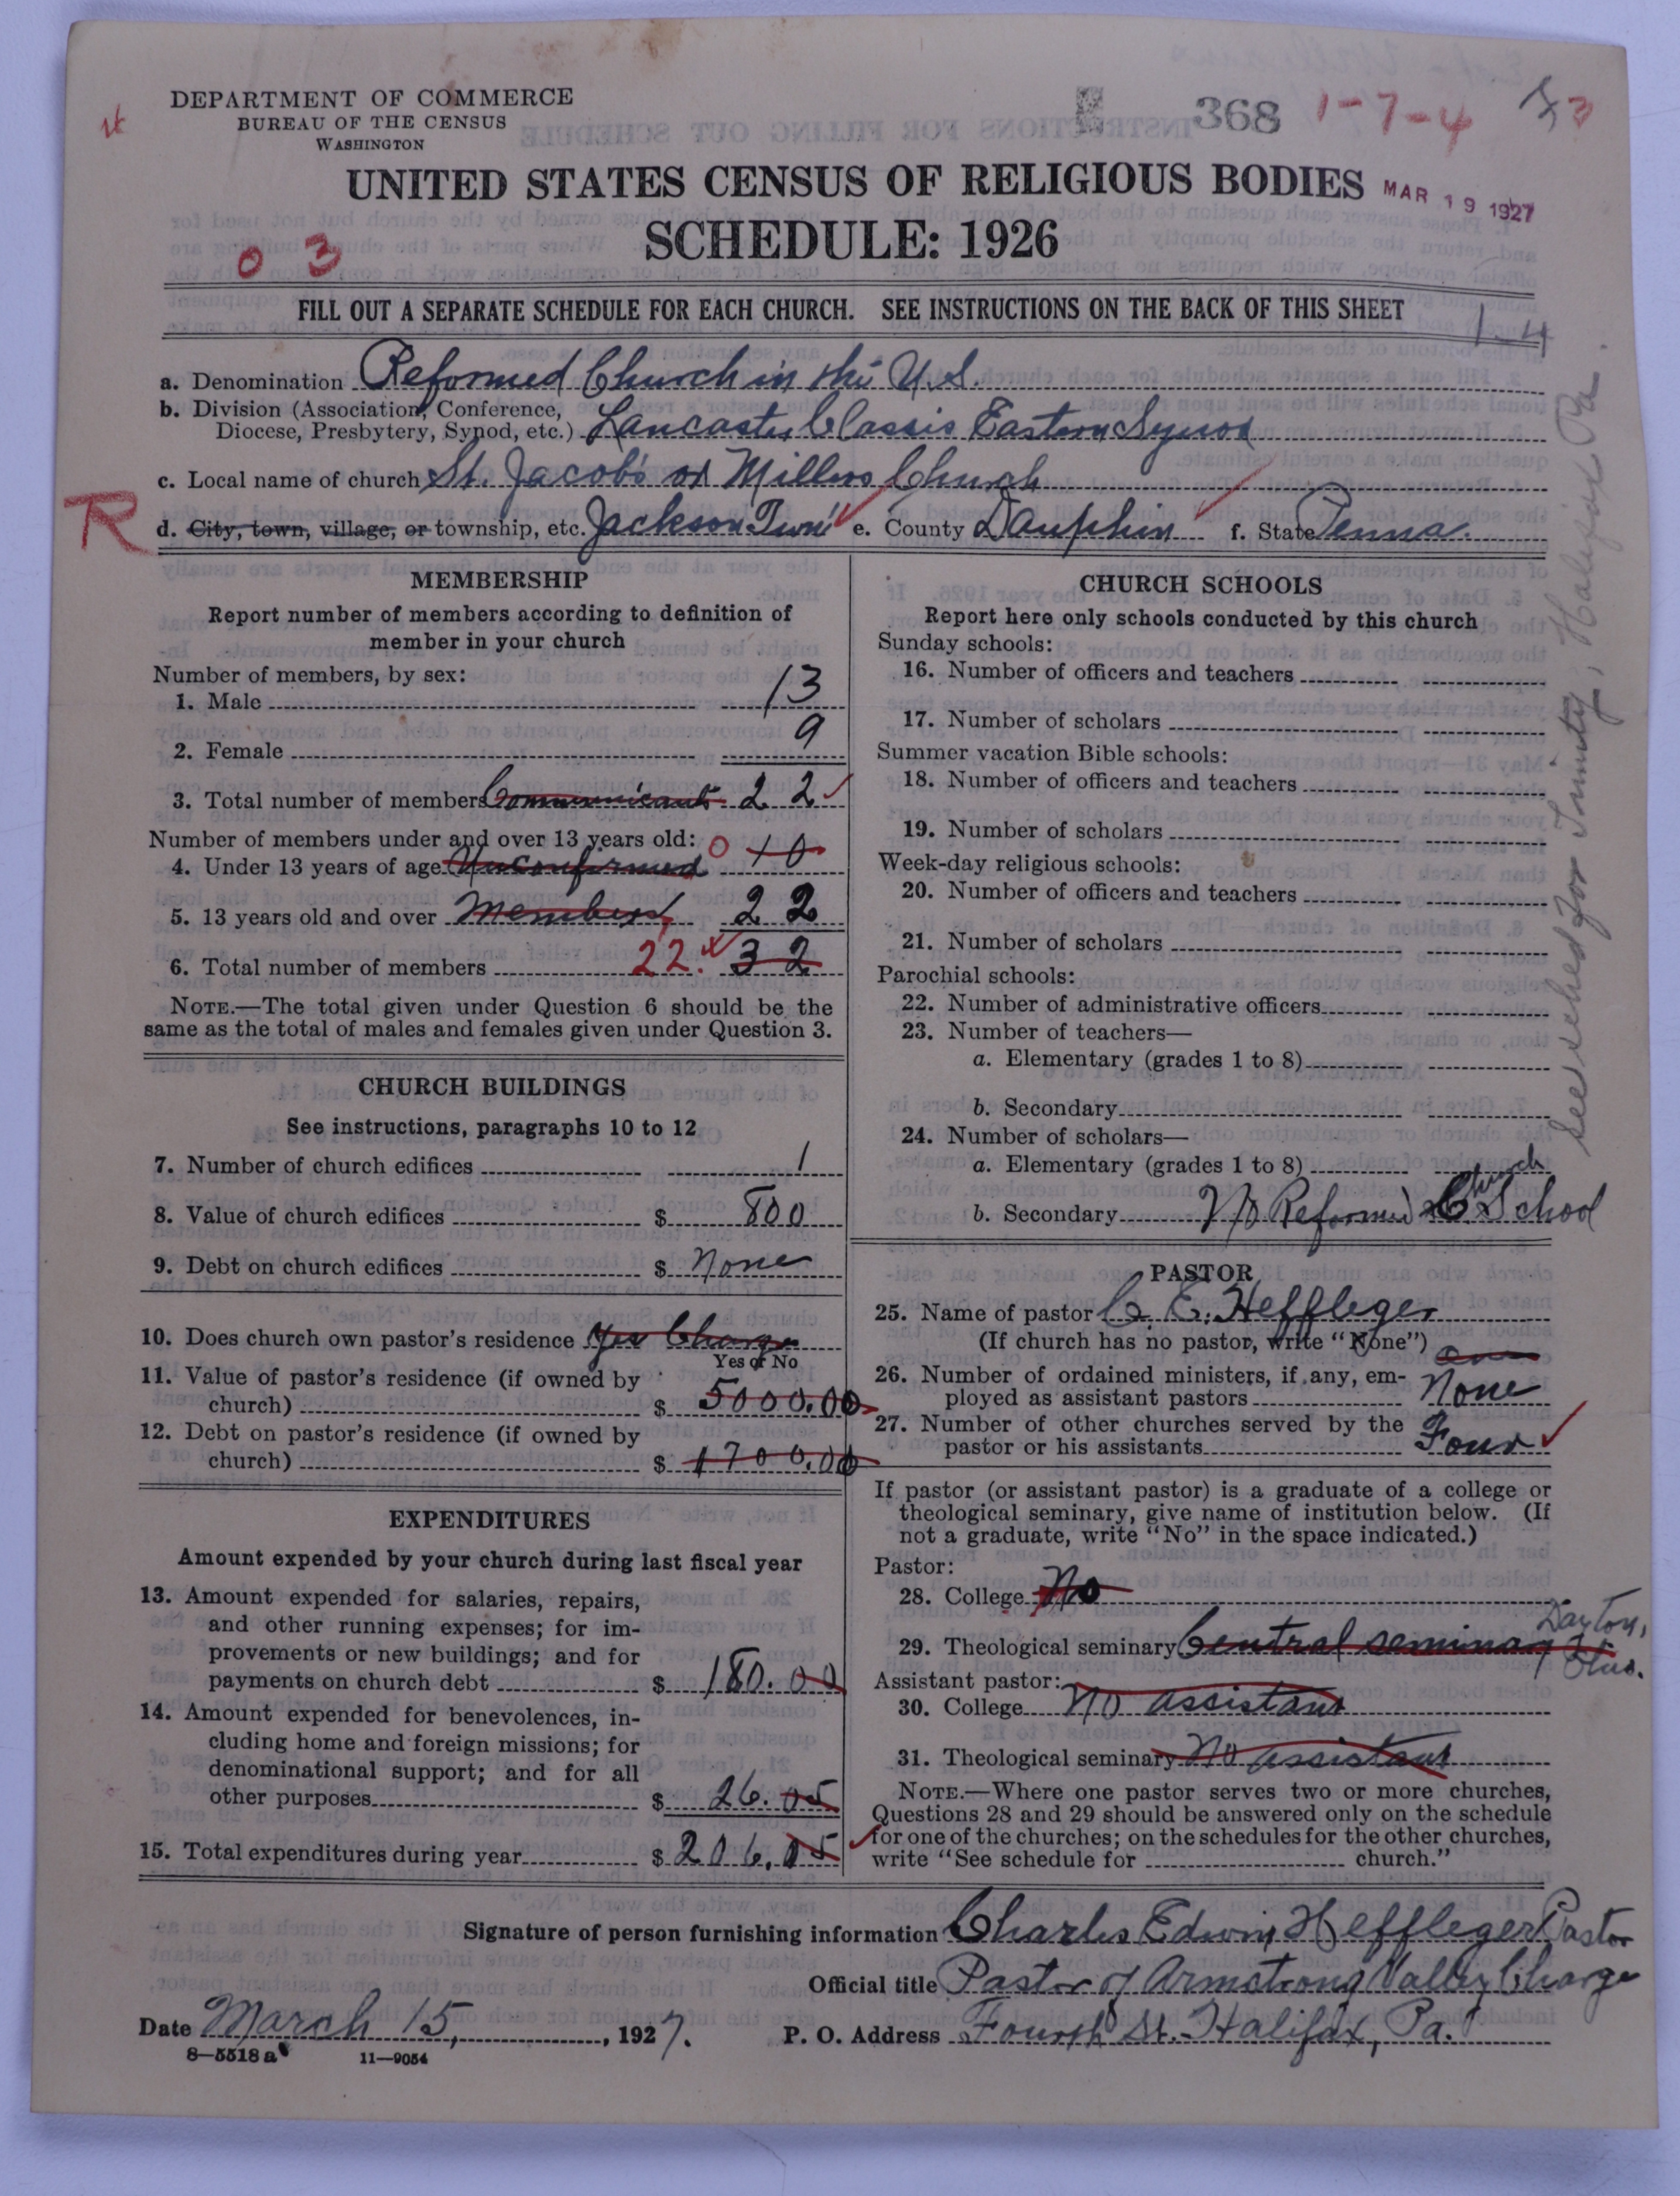 DEPARTMENT OF COMMERCE
BUREAU OF THE CENSUS
WASHINGTON
368 1-7-4
3
UNITED STATES CENSUS OF RELIGIOUS BODIES
MAR 19 1927
SCHEDULE: 1926
0 3
FILL OUT A SEPARATE SCHEDULE FOR EACH CHURCH. SEE INSTRUCTIONS ON THE BACK OF THIS SHEET
1-4
a. Denomination Reformed Church in the U.S.
b. Division (Association, Conference,
Diocese, Presbytery, Synod, etc.) Lancaster Classis Eastern Synod
c. Local name of church St. Jacob's or Millers Church
R
d. City, town, village, or township, etc. Jackson Twn' e. County Dauphin f. State Penna.
MEMBERSHIP
Report number of members according to definition of
member in your church
Number of members, by sex:
1. Male 13
2. Female 9
3. Total number of members Communicant 22
Number of members under and over 13 years old:
4. Under 13 years of age Unconfirmed 0 10
5. 13 years old and over Members 22
6. Total number of members 22. 32
NOTE.—The total given under Question 6 should be the
same as the total of males and females given under Question 3.
CHURCH BUILDINGS
See instructions, paragraphs 10 to 12
7. Number of church edifices 1
8. Value of church edifices $ 800
9. Debt on church edifices $ None
10. Does church own pastor's residence Yes Charge
Yes or No
11. Value of pastor's residence (if owned by
church) $ 5000.00
12. Debt on pastor's residence (if owned by
church) $ 1700.00
EXPENDITURES
Amount expended by your church during last fiscal year
13. Amount expended for salaries, repairs,
and other running expenses; for im-
provements or new buildings; and for
payments on church debt $ 180.00
14. Amount expended for benevolences, in-
cluding home and foreign missions; for
denominational support; and for all
other purposes $ 26.05
15. Total expenditures during year $ 206.05
CHURCH SCHOOLS
Report here only schools conducted by this church
Sunday schools:
16. Number of officers and teachers
17. Number of scholars
Summer vacation Bible schools:
18. Number of officers and teachers
19. Number of scholars
Week-day religious schools:
20. Number of officers and teachers
21. Number of scholars
Parochial schools:
22. Number of administrative officers
23. Number of teachers—
a. Elementary (grades 1 to 8)
b. Secondary
24. Number of scholars—
a. Elementary (grades 1 to 8)
b. Secondary No Reformed Church School
See sched for Trinity, Halifax Pa.
PASTOR
25. Name of pastor C. E. Heffleger
(If church has no pastor, write "None")
26. Number of ordained ministers, if any, em-
ployed as assistant pastors None
27. Number of other churches served by the
pastor or his assistants Four
If pastor (or assistant pastor) is a graduate of a college or
theological seminary, give name of institution below. (If
not a graduate, write "No" in the space indicated.)
Pastor:
28. College No
29. Theological seminary Central seminary Dayton,
Ohio.
Assistant pastor:
30. College No assistant
31. Theological seminary No assistant
NOTE.—Where one pastor serves two or more churches,
Questions 28 and 29 should be answered only on the schedule
for one of the churches; on the schedules for the other churches,
write "See schedule for church."
Signature of person furnishing information Charles Edwin Heffleger Pastor
Official title Pastor of Armstrong Valley Charge
Date March 15, 1927. P. O. Address Fourth St. Halifax, Pa.
8—5518 a 11—9054